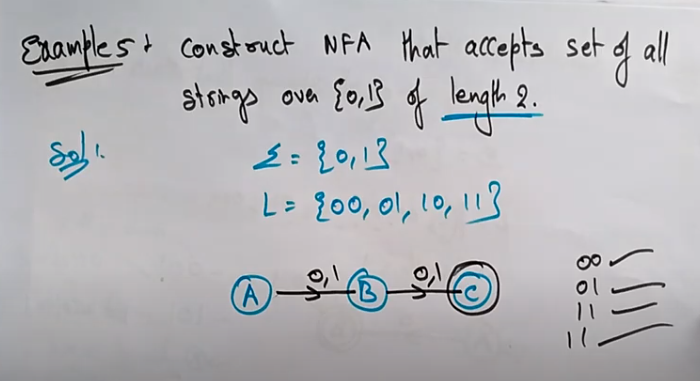 Examples: construct NFA that accepts set of all
strings over {0,1} of length 2.
Sol:
Σ = {0,1}
L = {00, 01, 10, 11}
A 0,1 B 0,1 C
00
01
11
11